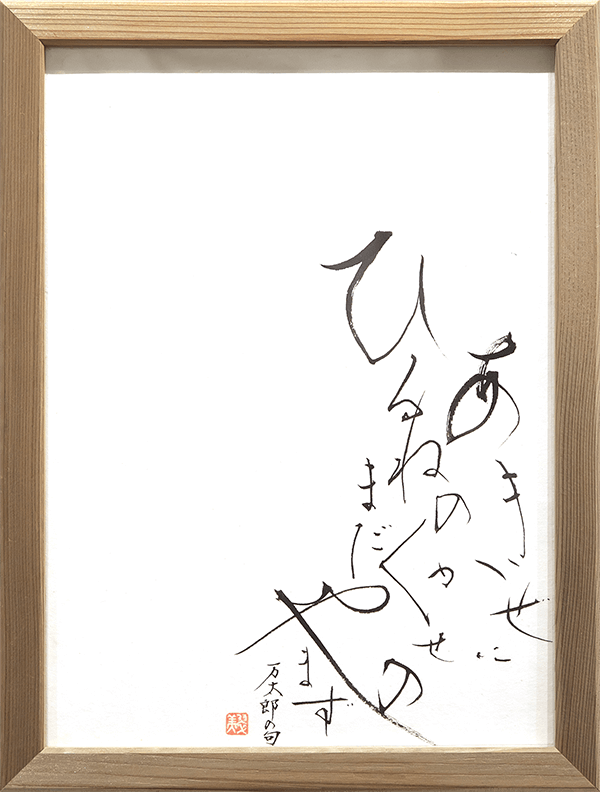 あきかぜに
ひるねのくせの
まだやまず
万太郎の句